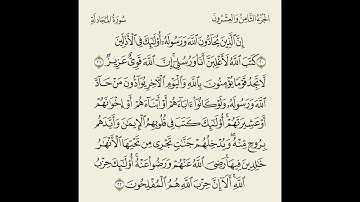 الجزء الثامن والعشرون
سورة المجادلة
إِنَّ ٱلَّذِينَ يُحَآدُّونَ ٱللَّهَ وَرَسُولَهُۥٓ أُو۟لَٰٓئِكَ فِى ٱلْأَذَلِّينَ
٢٠ كَتَبَ ٱللَّهُ لَأَغْلِبَنَّ أَنَا۠ وَرُسُلِىٓ إِنَّ ٱللَّهَ قَوِىٌّ عَزِيزٌ ٢١
لَّا تَجِدُ قَوْمًا يُؤْمِنُونَ بِٱللَّهِ وَٱلْيَوْمِ ٱلْءَاخِرِ يُوَآدُّونَ مَنْ حَآدَّ
ٱللَّهَ وَرَسُولَهُۥ وَلَوْ كَانُوٓا۟ ءَابَآءَهُمْ أَوْ أَبْنَآءَهُمْ أَوْ إِخْوَٰنَهُمْ
أَوْ عَشِيرَتَهُمْ أُو۟لَٰٓئِكَ كَتَبَ فِى قُلُوبِهِمُ ٱلْإِيمَٰنَ وَأَيَّدَهُم
بِرُوحٍ مِّنْهُ وَيُدْخِلُهُمْ جَنَّٰتٍ تَجْرِى مِن تَحْتِهَا ٱلْأَنْهَٰرُ
خَٰلِدِينَ فِيهَا رَضِىَ ٱللَّهُ عَنْهُمْ وَرَضُوا۟ عَنْهُ أُو۟لَٰٓئِكَ حِزْبُ
ٱللَّهِ أَلَآ إِنَّ حِزْبَ ٱللَّهِ هُمُ ٱلْمُفْلِحُونَ ٢٢